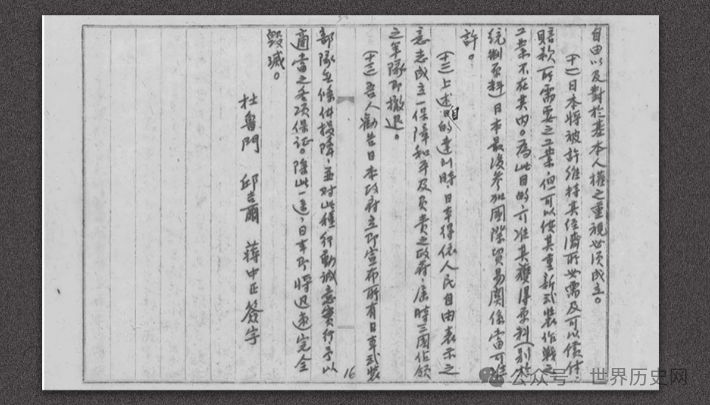 自由以及對於基本人權之重視必須成立。
(十一)日本將被許維持其經濟所必需及可以償付
賠款所需要之工業,但可以使其重新武裝作戰之
工業不在其內。為此目的,可准其獲得原料(別於
統制原料)日本最後參加國際貿易關係當可准
許。
(十二)上述目的達到時,日本得依人民自由表示之
意志成立一保障和平及負責之政府,屆時三國佔領
之軍隊即撤退。
(十三)吾人勸告日本政府立即宣布所有日本武裝
部隊無條件投降,並對此種行動誠意實行予以
適當之各項保證。除此一途,日本即將迅速完全
毀滅。
杜魯門 邱吉爾 蔣中正 簽字
16
公众号·世界历史网